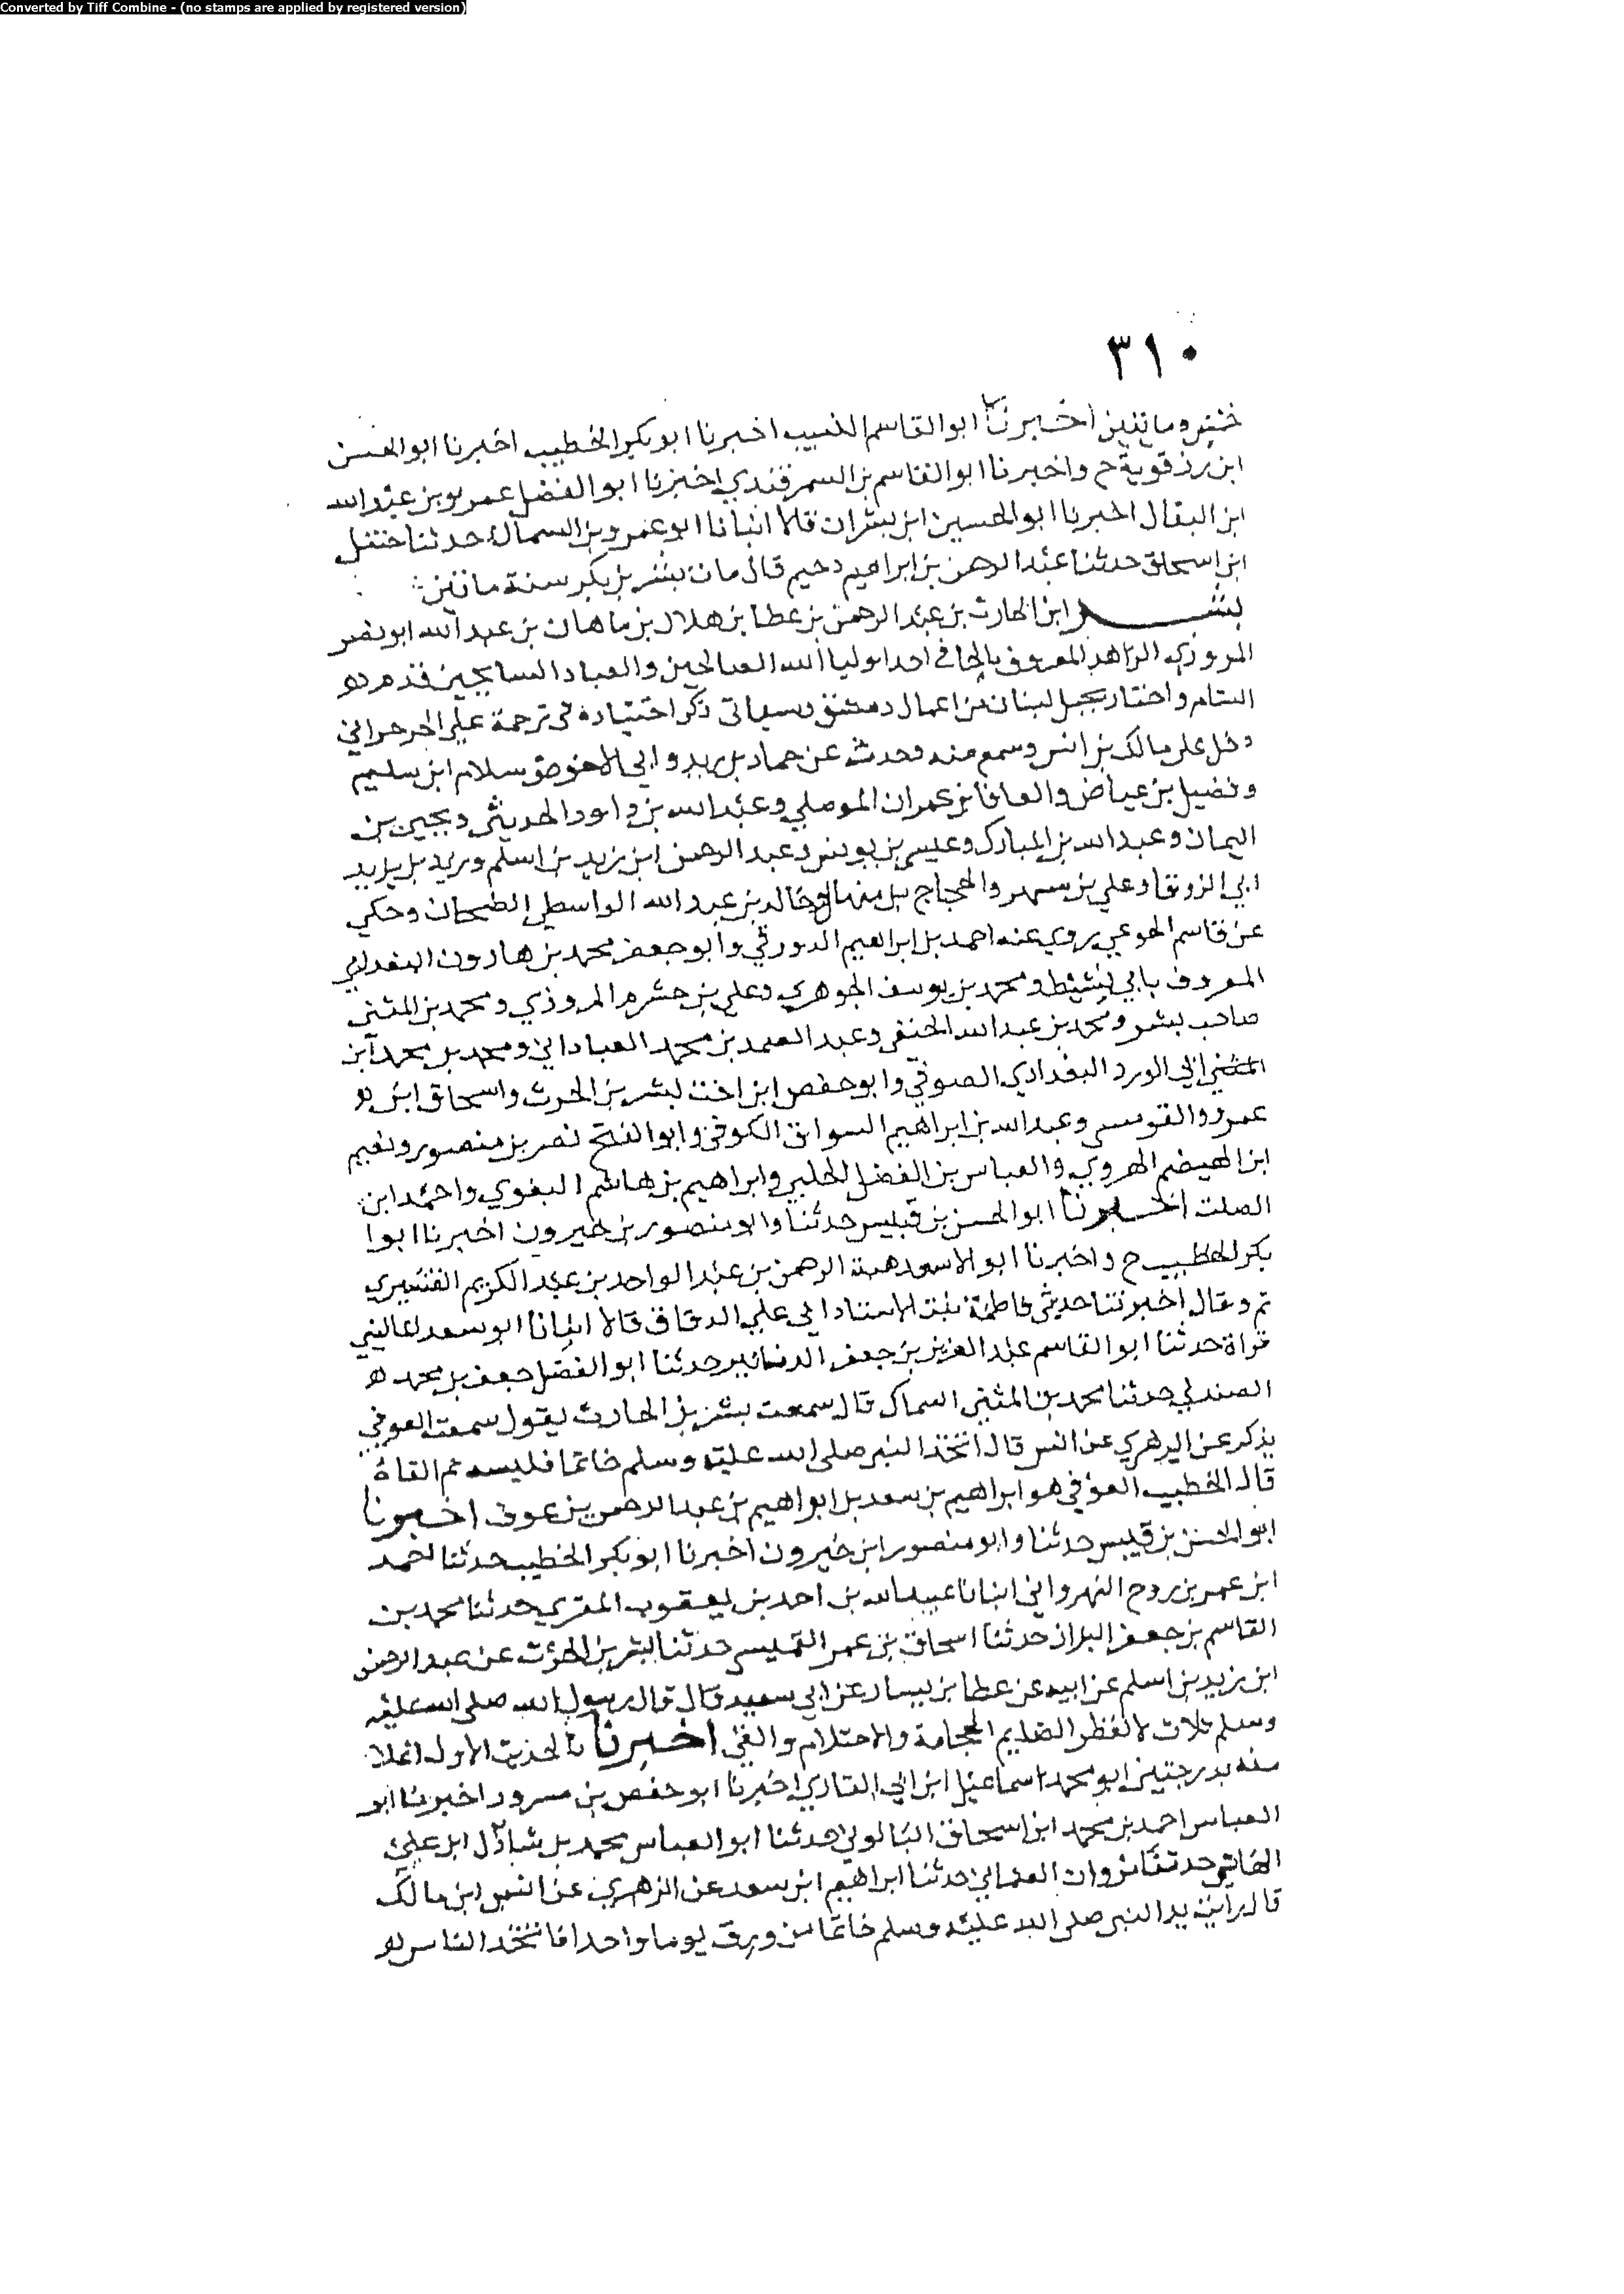 Converted by Tiff Combine - (no stamps are applied by registered version)
٣١٠
خمس وماتنين اخبرنا ابو القاسم النسيب اخبرنا ابو بكر الخطيب اخبرنا ابو الحسن
ابن رزقوية ح واخبرنا ابو القاسم بن السمرقندي اخبرنا ابو الفضل عمر بن عبد الله
ابن البقال اخبرنا ابو الحسين ابن بشران قالا انبانا ابو عمرو بن السماك حدثنا حنبل
ابن اسحاق حدثنا عبد الرحمن بن ابراهيم دحيم قال مات بشر بن بكر سنة ماتين
بشر ابن الحارث بن عبد الرحمن بن عطا بن هلال بن ماهان بن عبد الله ابو نصر
المروزي الزاهد المعروف بالحافي احد اوليا الله الصالحين والعباد السايحين قدم
الشام واختار بجبل لبنان من اعمال دمشق وسياتي ذكر اجتيازه في ترجمة علي الجرجراني
دخل على مالك بن انس وسمع منه وحدث عن حماد بن زيد وابي الاحوص سلام ابن سليم
وفضيل بن عياض والمعافا بن عمران الموصلي وعبد الله بن داود الحديثي ويحيى بن
اليمان وعبد الله بن المبارك وعيسى بن يونس وعبد الرحمن ابن زيد بن اسلم وزيد بن
ابي الزرقا وعلي بن مسهر والحجاج بن منهال وخالد بن عبد الله الواسطي الطحان وحكي
عن قاسم الجوعي يروي عنه احمد بن ابراهيم الدورقي وابو جعفر محمد بن هارون البغدادي
المعروف بابي نشيط ومحمد بن يوسف الجوهري وعلي بن خشرم المروزي ومحمد بن المثنى
صاحب بشر ومحمد بن عبد الله الحنفي وعبد الصمد بن محمد العباداني ومحمد بن محمد ابن
ابي الورد البغدادي الصوفي وابو حفص ابن اخت بشر بن الحرث واسحاق ابن
عمرو القومسي وعبد الله بن ابراهيم السواق الكوفي وابو الفتح نصر بن منصور ونعيم
ابن الهيضم الهروي والعباس بن الفضل الحلبي وابراهيم بن هاشم البغوي واحمد ابن
الصلت اخبرنا ابو الحسن بن قبيس حدثنا وابو منصور بن خيرون اخبرنا ابوا
بكر الخطيب ح واخبرنا ابو الاسعد هبة الرحمن بن عبد الواحد بن عبد الكريم القشيري
ثم وقال اخبرتنا جدتي فاطمة بنت الاستاد ابي علي الدقاق قالا انبانا ابو سعد الماليني
قراة حدثنا ابو القاسم عبد العزيز بن جعفر حدثنا ابو الفضل جعفر بن محمد
الصندلي حدثنا محمد بن المثنى السماك قال سمعت بشر بن الحارث يقول سمعت العوفي
يذكر عن الزهري عن انس قال اتخذ النبي صلى الله عليه وسلم خاتما فلبسه ثم القاه
قال الخطيب العوفي هو ابراهيم بن سعد بن ابراهيم بن عبد الرحمن بن عوف اخبرنا
ابو الحسن بن قبيس حدثنا وابو منصور ابن خيرون اخبرنا ابو بكر الخطيب حدثنا احمد
ابن عمر بن روح النهرواني انبانا عبيد الله بن احمد بن يعقوب المقري حدثنا محمد بن
القاسم بن جعفر البزاز حدثنا اسحاق بن عمر القميسي حدثنا بشر بن الحرث عن عبد الرحمن
ابن زيد بن اسلم عن ابيه عن عطا بن يسار عن ابي سعيد قال قال رسول الله صلى الله عليه
وسلم ثلاث لا تفطر الصايم الحجامة والاحتلام والقئ اخبرنا بالحديث الاول اعلا
منه بدرجتين ابو محمد اسماعيل ابن ابي القاري اخبرنا ابو حفص بن مسرور اخبرنا ابو
العباس احمد بن محمد ابن اسحاق البالوي حدثنا ابو العباس محمد بن شاذل ابن علي
حدثنا مروان العثماني حدثنا ابراهيم ابن سعد عن الزهري عن انس ابن مالك
قال رايت يد النبي صلى الله عليه وسلم خاتما من ورق يوما واحدا فاتخذ الناس